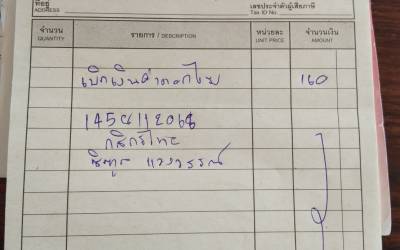 ที่อยู่
ADDRESS
เลขประจำตัวผู้เสียภาษี
Tax ID No.
จำนวน รายการ / DESCRIPTION หน่วยละ จำนวนเงิน
QUANTITY UNIT PRICE AMOUNT
เบิกเงินค่าดอกไม้ 160
1458112068
กสิกรไทย